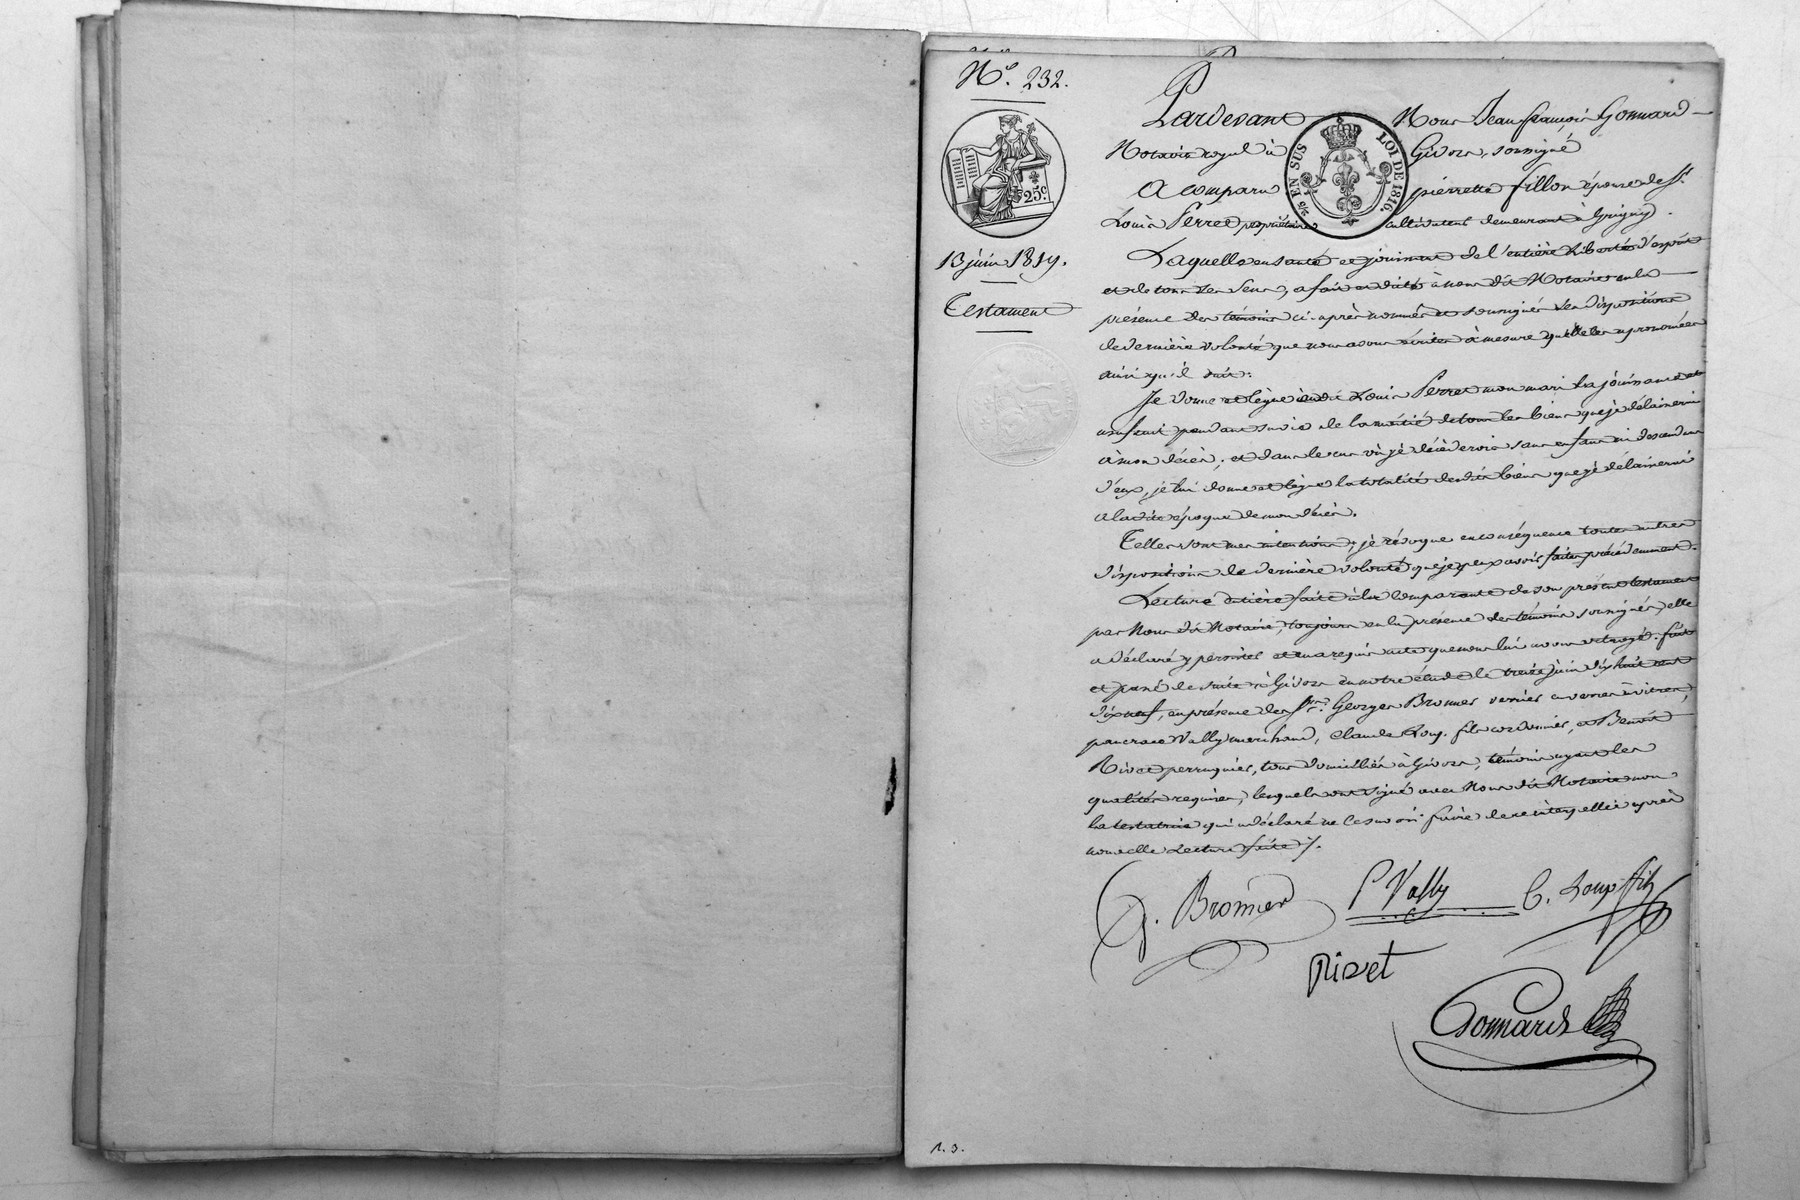 N.° 232.
25c.
13 juin 1819.
Testament
Pardevant Nous Jean françois Gonnard
Notaire royal à Givors, soussigné
EN SUS LOI DE 1816.
A comparu pierrette fillon épouse de Sr.
Louis Perret propriétaire cultivateur demeurant à Grigny.
Laquelle en santé et jouissant de l'entière liberté d'esprit
et de tous ses sens, a fait et dicté à nous dit Notaire en la
présence des témoins ci-après nommés et soussignés ses dispositions
de dernière volonté que nous avons écrites à mesure qu'elle les a prononcées
ainsi qu'il suit:
Je donne et lègue audit Louis Perret mon mari la jouissance et
usufruit pendant sa vie de la moitié de tous les biens que je délaisserai
à mon décès; et dans le cas où je décéderois sans enfans ni descendans
d'eux, je lui donne et lègue la totalité desdits biens que je délaisserai
a ladite époque de mon décès.
Telles sont mes intentions; je révoque en conséquence toutes autres
dispositions de dernière volonté que je peux avoir faites précédemment.
Lecture entière faite à la comparante de son présent testament
par Nous dit Notaire, toujours en la présence des témoins soussignés, elle
a déclaré y persister et en a requis acte que nous lui avons octroyé. fait
et passé de suite à Givors en notre étude le treize juin dix huit cent
dix neuf, en présence des Srs. Georges Bronner verrier en verres à vitres,
pancrace Vally marchand, Claude Loup fils cordonnier, et Benoît
Rivet perruquier, tous domiciliés à Givors, témoins ayant les
qualités requises, lesquels ont signé avec Nous dit Notaire non
la testatrice qui a déclaré ne le savoir faire de ce interpellée après
nouvelle lecture faite ./.
G. Bronner P Vally C. Loup fils
Rivet
Gonnard
1. 3.